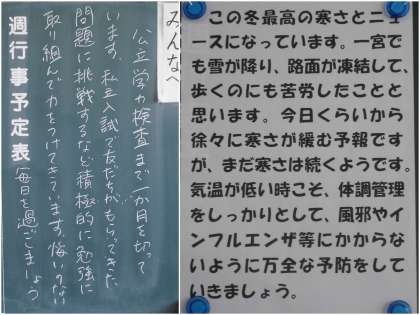 みんなへ
公立学力検査まで一か月を切って
います。私立入試で友だちがもらってきた
問題に挑戦するなど積極的に勉強に
取り組んで力をつけてきています。悔いのない
毎日を過ごしましょう
週行事予定表
この冬最高の寒さとニュ
ースになっています。一宮で
も雪が降り、路面が凍結して、
歩くのにも苦労したことと
思います。今日くらいから
徐々に寒さが緩む予報です
が、まだ寒さは続くようです。
気温が低い時こそ、体調管理
をしっかりとして、風邪やイ
ンフルエンザ等にかからな
いように万全な予防をして
いきましょう。